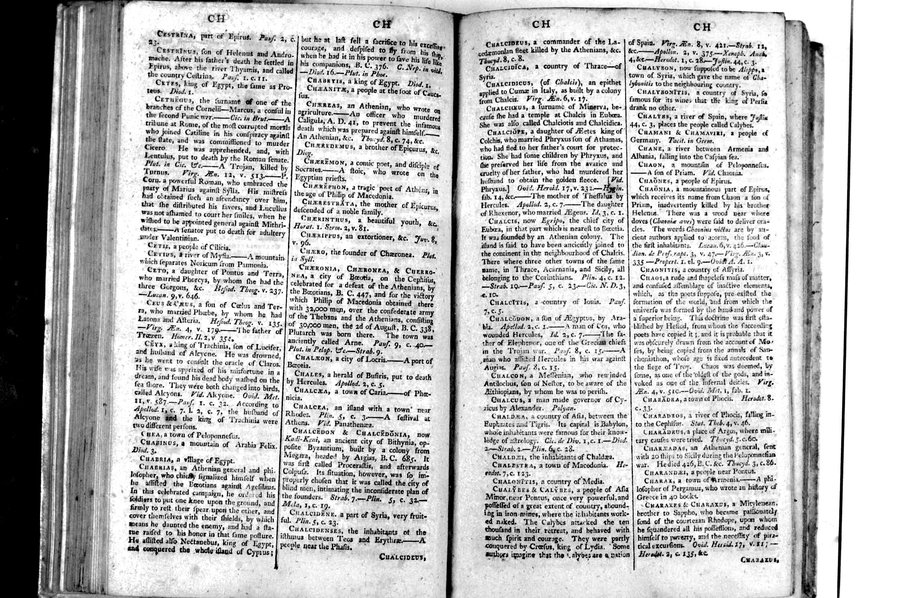 CH
CH
CESTRINA, part of Epirus. Pauf. 2, c.
23.
CESTRĪNUS, son of Helenus and Andro-
mache. After his father's death he settled in
Epirus, above the river Thyamis, and called
the country Cestrina. Pauf. 1. c. 11.
CETES, king of Egypt, the same as Pro-
teus. Diod. 1.
CETHĒGUS, the surname of one of the
branches of the Cornelii——Marcus, a consul in
the second Punic war.——Cic. in Brut.——A
tribune at Rome, of the most corrupted morals
who joined Catiline in his conspiracy against
the state, and was commissioned to murder
Cicero. He was apprehended, and, with
Lentulus, put to death by the Roman senate.
Plut. in Cic. &c.——A Trojan, killed by
Turnus. Virg. Æn. 12, v. 513——P.
Corn. a powerful Roman, who embraced the
party of Marius against Sylla. His mistress
had obtained such an ascendancy over him,
that she distributed his favors, and Lucullus
was not ashamed to court her smiles, when he
wished to be appointed general against Mithri-
dates.——A senator put to death for adultery
under Valentinian.
CETII, a people of Cilicia.
CETIUS, a river of Mysia.——A mountain
which separates Noricum from Pannonia.
CETO, a daughter of Pontus and Terra,
who married Phorcys, by whom she had the
three Gorgons, &c. Hesiod. Theog. v. 237.
—Lucan. 9, v. 646.
CEUS & CÆUS, a son of Cœlus and Ter-
ra, who married Phœbe, by whom he had
Latona and Asteria. Hesiod. Theog. v. 135.
—Virg. Æn. 4, v. 179.——The father of
Trœzen. Homer. Il. 2, v. 354.
CĒYX, a king of Trachinia, son of Lucifer,
and husband of Alcyone. He was drowned,
as he went to consult the oracle of Claros.
His wife was apprized of his misfortune in a
dream, and found his dead body washed on the
sea shore. They were both changed into birds,
called Alcyons. Vid. Alcyone. Ovid. Met.
11, v. 587.—Pauf. 1. c. 32. According to
Apollod. 1, c. 7. l. 2, c. 7, the husband of
Alcyone and the king of Trachinia were
two different persons.
CHEA, a town of Peloponnesus.
CHABINUS, a mountain of Arabia Felix.
Diod. 3.
CHABRIA, a village of Egypt.
CHABRIAS, an Athenian general and phi-
losopher, who chiefly signalized himself when
he assisted the Bœotians against Agesilaus.
In this celebrated campaign, he ordered his
soldiers to put one knee upon the ground, and
firmly to rest their spear upon the other, and
cover themselves with their shields, by which
means he daunted the enemy, and had a sta-
tue raised to his honor in that same posture.
He assisted also Nectanebus, king of Egypt,
and conquered the whole island of Cyprus;
but he at last fell a sacrifice to his excessive
courage, and despised to fly from his ship,
when he had it in his power to save his life like
his companions, B. C. 376. C. Nep. in vitâ.
—Diod. 16.—Plut. in Phoc.
CHABRYIS, a king of Egypt. Diod. 1.
CHÆANITÆ, a people at the foot of Cauca-
sus.
CHÆREAS, an Athenian, who wrote on
agriculture.——An officer who murdered
Caligula, A. D. 41, to prevent the infamous
death which was prepared against himself.——
An Athenian, &c. Thucyd. 8, c. 74, &c.
CHÆREDEMUS, a brother of Epicurus, &c.
Diog.
CHÆRĒMON, a comic poet, and disciple of
Socrates.——A stoic, who wrote on the
Egyptian priests.
CHÆREPHON, a tragic poet of Athens, in
the age of Philip of Macedonia.
CHÆRESTRĂTA, the mother of Epicurus,
descended of a noble family.
CHÆRINTHUS, a beautiful youth, &c.
Horat. 1. Serm. 2, v. 81.
CHÆRIPPUS, an extortioner, &c. Juv. 8,
v. 96.
CHÆRO, the founder of Chæronea. Plut.
in Syll.
CHÆRONIA, CHÆRONEA, & CHERRO-
NEA, a city of Bœotia, on the Cephisus,
celebrated for a defeat of the Athenians, by
the Bœotians, B. C. 447, and for the victory
which Philip of Macedonia obtained there
with 32,000 men, over the confederate army
of the Thebans and the Athenians, consisting
of 30,000 men, the 2d of August, B. C. 338.
Plutarch was born there. The town was
anciently called Arne. Pauf. 9, c. 40.—
Plut. in Pelop. &c.—Strab. 9.
CHALÆON, a city of Locris.——A port of
Bœotia.
CHALES, a herald of Busiris, put to death
by Hercules. Apollod. 2, c. 5.
CHALCÆA, a town of Caria.——of Phœ-
nicia.
CHALCEA, an island with a town near
Rhodes. Plin. 5, c. 3.——A festival at
Athens. Vid. Panathenæa.
CHALCĒDON & CHALCĒDŎNIA, now
Kadi-Keni, an ancient city of Bithynia, op-
posite Byzantium, built by a colony from
Megara, headed by Argias, B.C. 685. It
was first called Procerastis, and afterwards
Colpusa. Its situation, however, was so im-
properly chosen that it was called the city of
blind men, intimating the inconsiderate plan of
the founders. Strab. 7.—Plin. 5, c. 32.—
Mela, 1, c. 19.
CHALCIDĒNE, a part of Syria, very fruit-
ful. Plin. 5, c. 23.
CHALCIDENSES, the inhabitants of the
isthmus between Teos and Erythræ.——A
people near the Phasis.
CHALCIDEUS,
CH
CH
CHALCIDEUS, a commander of the La-
cedæmonian fleet killed by the Athenians, &c.
Thucyd. 8, c. 8.
CHALCIDĬCA, a country of Thrace—of
Syria.
CHALCIDICUS, (of Chalcis), an epithet
applied to Cumæ in Italy, as built by a colony
from Chalcis. Virg. Æn. 6, v. 17.
CHALCIŒCUS, a surname of Minerva, be-
cause she had a temple at Chalcis in Eubœa.
She was also called Chalciotis and Chalcidica.
CHALCIŎPE, a daughter of Æetes king of
Colchis, who married Phryxus son of Athamas,
who had fled to her father's court for protec-
tion. She had some children by Phryxus, and
she preserved her life from the avarice and
cruelty of her father, who had murdered her
husband to obtain the golden fleece. [Vid.
Phryxus.] Ovid. Heroid. 17, v. 232.—Hygin.
fab. 14, &c.——The mother of Thessalus by
Hercules. Apollod. 2, c. 7.——The daughter
of Rhexenor, who married Ægeus. Id. 3, c. 1.
CHALCIS, now Egripo, the chief city of
Eubœa, in that part which is nearest to Bœotia.
It was founded by an Athenian colony. The
island is said to have been anciently joined to
the continent in the neighbourhood of Chalcis.
There were three other towns of the same
name, in Thrace, Acarnania, and Sicily, all
belonging to the Corinthians. Plin. 4, c. 12.
—Strab. 10.—Pauf. 5, c. 23.—Cic. N. D. 3,
c. 10.
CHALCĪTIS, a country of Ionia. Pauf.
7, c. 5.
CHALCŎDON, a son of Ægyptus, by Ara-
bia. Apollod. 2, c. 1.——A man of Cos, who
wounded Hercules. Id. 2, c. 7.——The fa-
ther of Elephenor, one of the Grecian chiefs
in the Trojan war. Pauf. 8, c. 15.——A
man who assisted Hercules in his war against
Augias. Pauf. 8, c. 15.
CHALCON, a Messenian, who reminded
Antilochus, son of Nestor, to be aware of the
Ethiopians, by whom he was to perish.
CHALCUS, a man made governor of Cy-
zicus by Alexander. Polyæn.
CHALDÆA, a country of Asia, between the
Euphrates and Tigris. Its capital is Babylon,
whose inhabitants were famous for their know-
ledge of astrology. Cic. de Div. 1, c. 1.—Diod.
2.—Strab. 2.—Plin. 6, c. 28.
CHALDÆI, the inhabitants of Chaldæa.
CHALESTRA, a town of Macedonia. He-
rodot. 7, c. 123.
CHALONĪTIS, a country of Media.
CHALȲBES & CALȲBES, a people of Asia
Minor, near Pontus, once very powerful, and
possessed of a great extent of country, abound-
ing in iron mines, where the inhabitants work-
ed naked. The Calybes attacked the ten
thousand in their retreat, and behaved with
much spirit and courage. They were partly
conquered by Crœsus, king of Lydia. Some
authors imagine that the Calybes are a nation
of Spain. Virg. Æn. 8, v. 421.—Strab. 12,
&c.—Apollon. 2, v. 375.—Xenoph. Anab.
4, &c.—Herodot. 1, c. 28.—Justin. 44, c. 3.
CHALYBON, now supposed to be Aleppo, a
town of Syria, which gave the name of Cha-
lybonitis to the neighbouring country.
CHALYBONĪTIS, a country of Syria, so
famous for its wines that the king of Persia
drank no other.
CHALYBS, a river of Spain, where Justin
44, c. 3, places the people called Calybes.
CHAMANI & CHAMAVIRI, a people of
Germany. Tacit. in Germ.
CHANE, a river between Armenia and
Albania, falling into the Caspian sea.
CHAON, a mountain of Peloponnesus.
——A son of Priam. Vid. Chaonia.
CHAŎNES, a people of Epirus.
CHAŎNIA, a mountainous part of Epirus,
which receives its name from Chaon a son of
Priam, inadvertently killed by his brother
Helenus. There was a wood near where
doves (Chaoniæ aves) were said to deliver ora-
cles. The words Chaonius victus are by an-
cient authors applied to acorns, the food of
the first inhabitants. Lucan. 6, v. 426.—Clau-
dian. de Pros. rapt. 3, v. 47.—Virg. Æn. 3, v.
335.—Propert. 1. el. 9.—Ovid. A. A. 1.
CHAONĪTIS, a country of Assyria.
CHAOS, a rude and shapeless mass of matter,
and confused assemblage of inactive elements,
which, as the poets suppose, pre-existed the
formation of the world, and from which the
universe was formed by the hand and power of
a superior being. This doctrine was first esta-
blished by Hesiod, from whom the succeeding
poets have copied it; and it is probable that it
was obscurely drawn from the account of Mo-
ses, by being copied from the annals of San-
choniathon, whose age is fixed antecedent to
the siege of Troy. Chaos was deemed, by
some, as one of the oldest of the gods, and in-
voked as one of the infernal deities. Virg.
Æn. 4, v. 510.—Ovid. Met. 1, fab. 1.
CHARĂDRA, a town of Phocis. Herodot. 8.
c. 33.
CHARADROS, a river of Phocis, falling in-
to the Cephisus. Stat. Theb. 4, v. 46.
CHARĂDRUS, a place of Argos, where mili-
tary causes were tried. Thucyd. 5. c. 60.
CHARÆADAS, an Athenian general, sent
with 20 ships to Sicily during the Peloponnesian
war. He died 426, B. C. &c. Thucyd. 3, c. 86.
CHARANDÆI, a people near Pontus.
CHARAX, a town of Armenia.——A phi-
losopher of Pergamus, who wrote an history of
Greece in 40 books.
CHARAXES & CHARAXUS, a Mitylenean,
brother to Sappho, who became passionately
fond of the courtezan Rhodope, upon whom
he squandered all his possessions, and reduced
himself to poverty, and the necessity of pira-
tical excursions. Ovid. Heroid. 17, v. 117.—
Herodot. 2, c. 135, &c.
CHARAXUS,